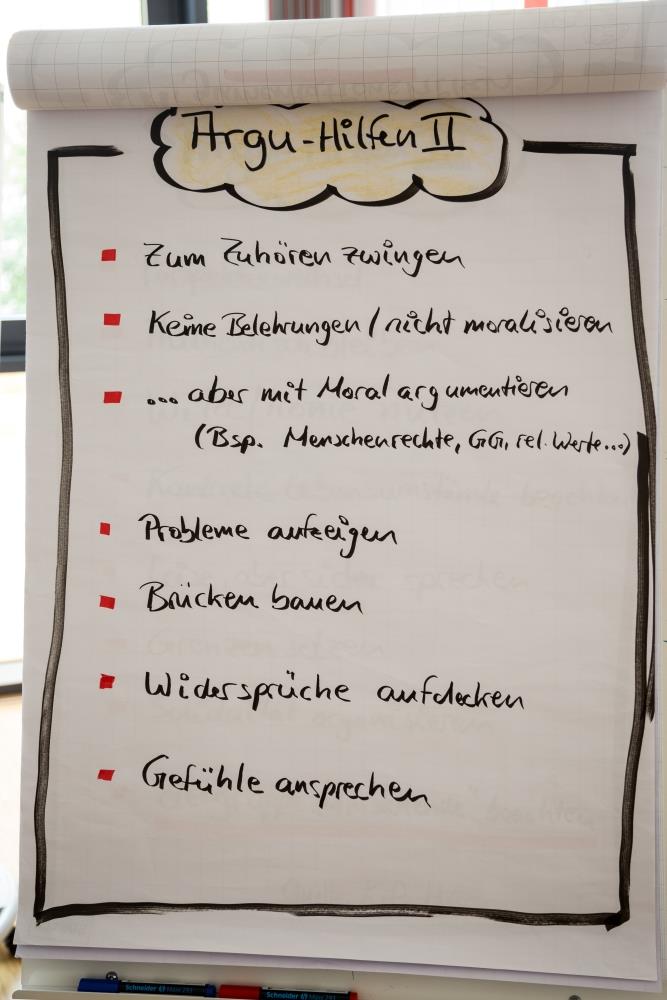 Argu-Hilfen II
Zum Zuhören zwingen
Keine Belehrungen / nicht moralisieren
... aber mit Moral argumentieren
(Bsp. Menschenrechte, GG, rel. Werte...)
Probleme aufzeigen
Brücken bauen
Widersprüche aufdecken
Gefühle ansprechen
Schneider Maxx 293
Schneider Maxx 293